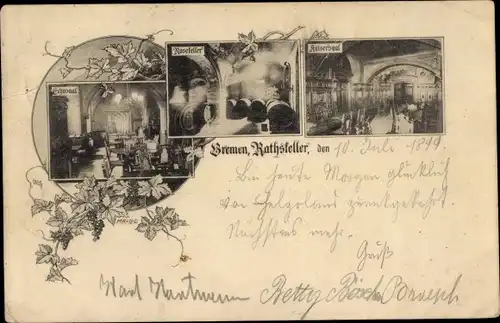 Echosaal
Rosekeller
Kaisersaal
Bremen, Rathskeller, den 10. Juli 1899
Bin heute Morgen glücklich
von Helgoland zurückgekehrt.
Nächstens mehr.
Gruß
Karl Hartmann Betty